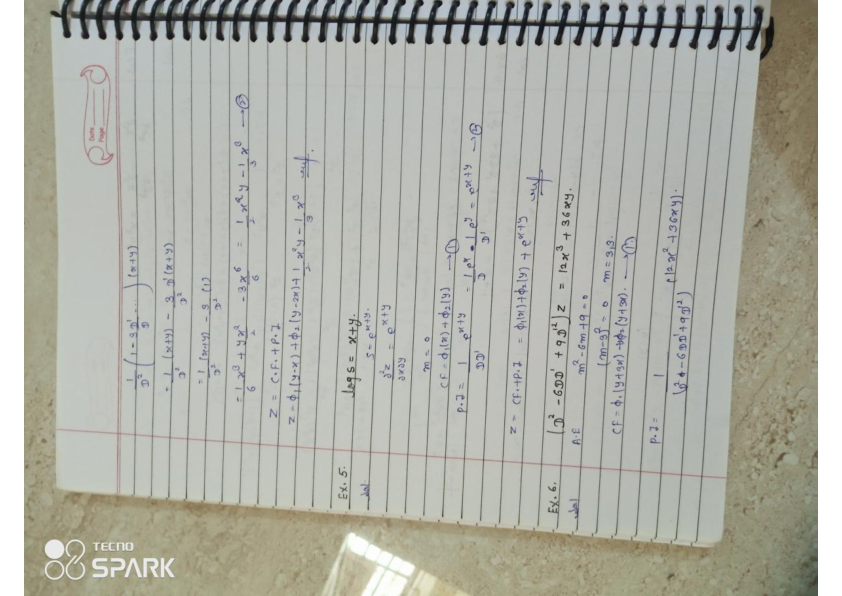 Date
Page
1/D² (1 - 3D'/D ...) (x+y)
= 1/D² (x+y) - 3/D² D'/D (x+y)
= 1/D² (x+y) - 3/D² (1)
= 1/6 x³ + yx²/2 - 3x³/6 = 1/2 x²y - 1/3 x³ → ②
Z = C.F. + P.I
Z = φ₁(y-x) + φ₂(y-2x) + 1/2 x²y - 1/3 x³
Ex. 5. log s = x+y.
Sol s = e^(x+y).
∂²z/∂x∂y = e^(x+y)
m = 0
CF = φ₁(x) + φ₂(y) → ①
P.I = 1/DD' e^(x+y) = 1/D e^x · 1/D' e^y = e^(x+y) → ②
Z = CF. + P.I = φ₁(x) + φ₂(y) + e^(x+y)
Ex. 6. (D² - 6DD' + 9D'²) Z = 12x² + 36xy.
Sol A.E m² - 6m + 9 = 0
(m-3)² = 0 m = 3,3.
CF = φ₁(y+3x) + xφ₂(y+3x). → ①
P.I = 1/(D² - 6DD' + 9D'²) (12x² + 36xy).
TECNO
SPARK